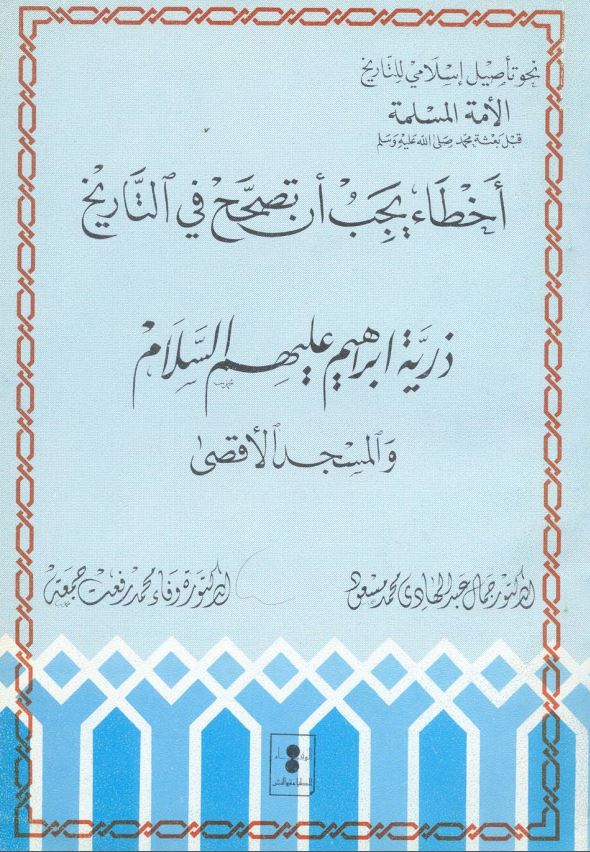 نحو تأصيل إسلامي للتاريخ
الأمة المسلمة
قبل بعثة محمد صلى الله عليه وسلم
أخطاء يجب أن تصحح في التاريخ
ذرية ابراهيم عليهم السلام
والمسجد الأقصى
الدكتور جمال عبد الهادى محمد مسعود
الدكتورة وفاء محمد رفعت جمعة
الوفاء
للطباعة والنشر